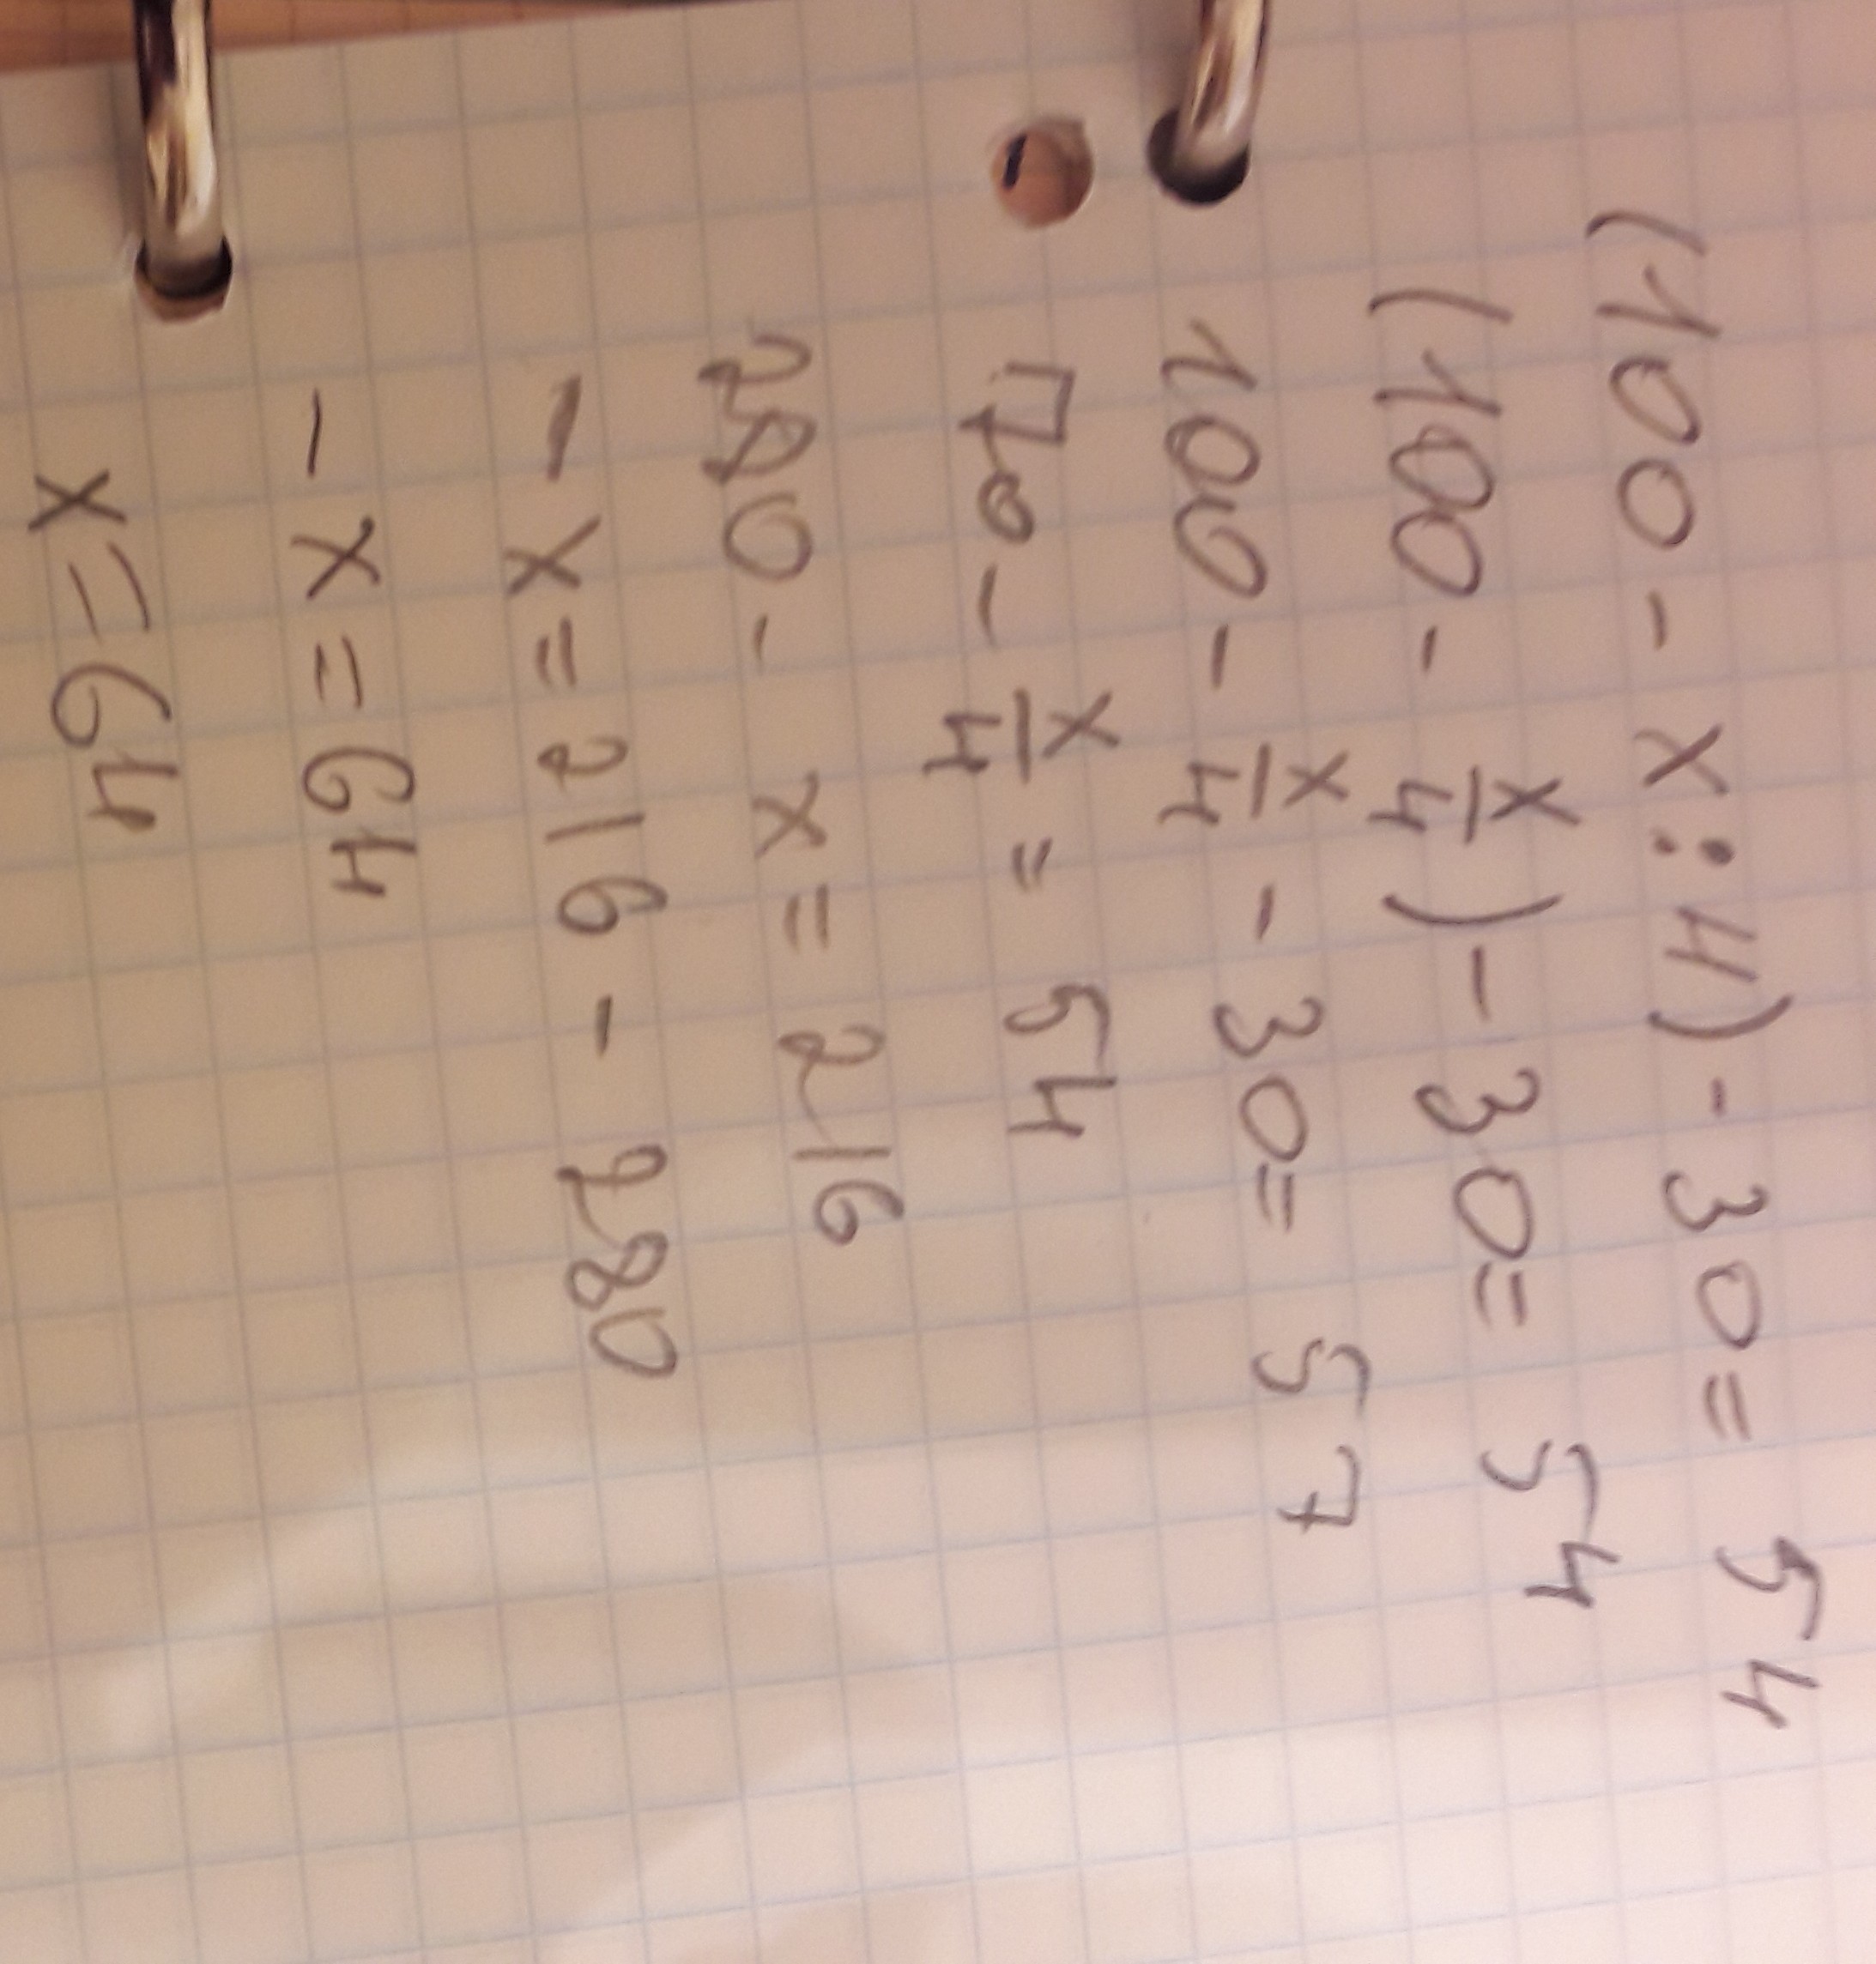 (100 - x : 4) - 30 = 54
(100 - x/4) - 30 = 54
100 - x/4 - 30 = 57
70 - x/4 = 54
280 - x = 216
- x = 216 - 280
- x = 64
x = 64